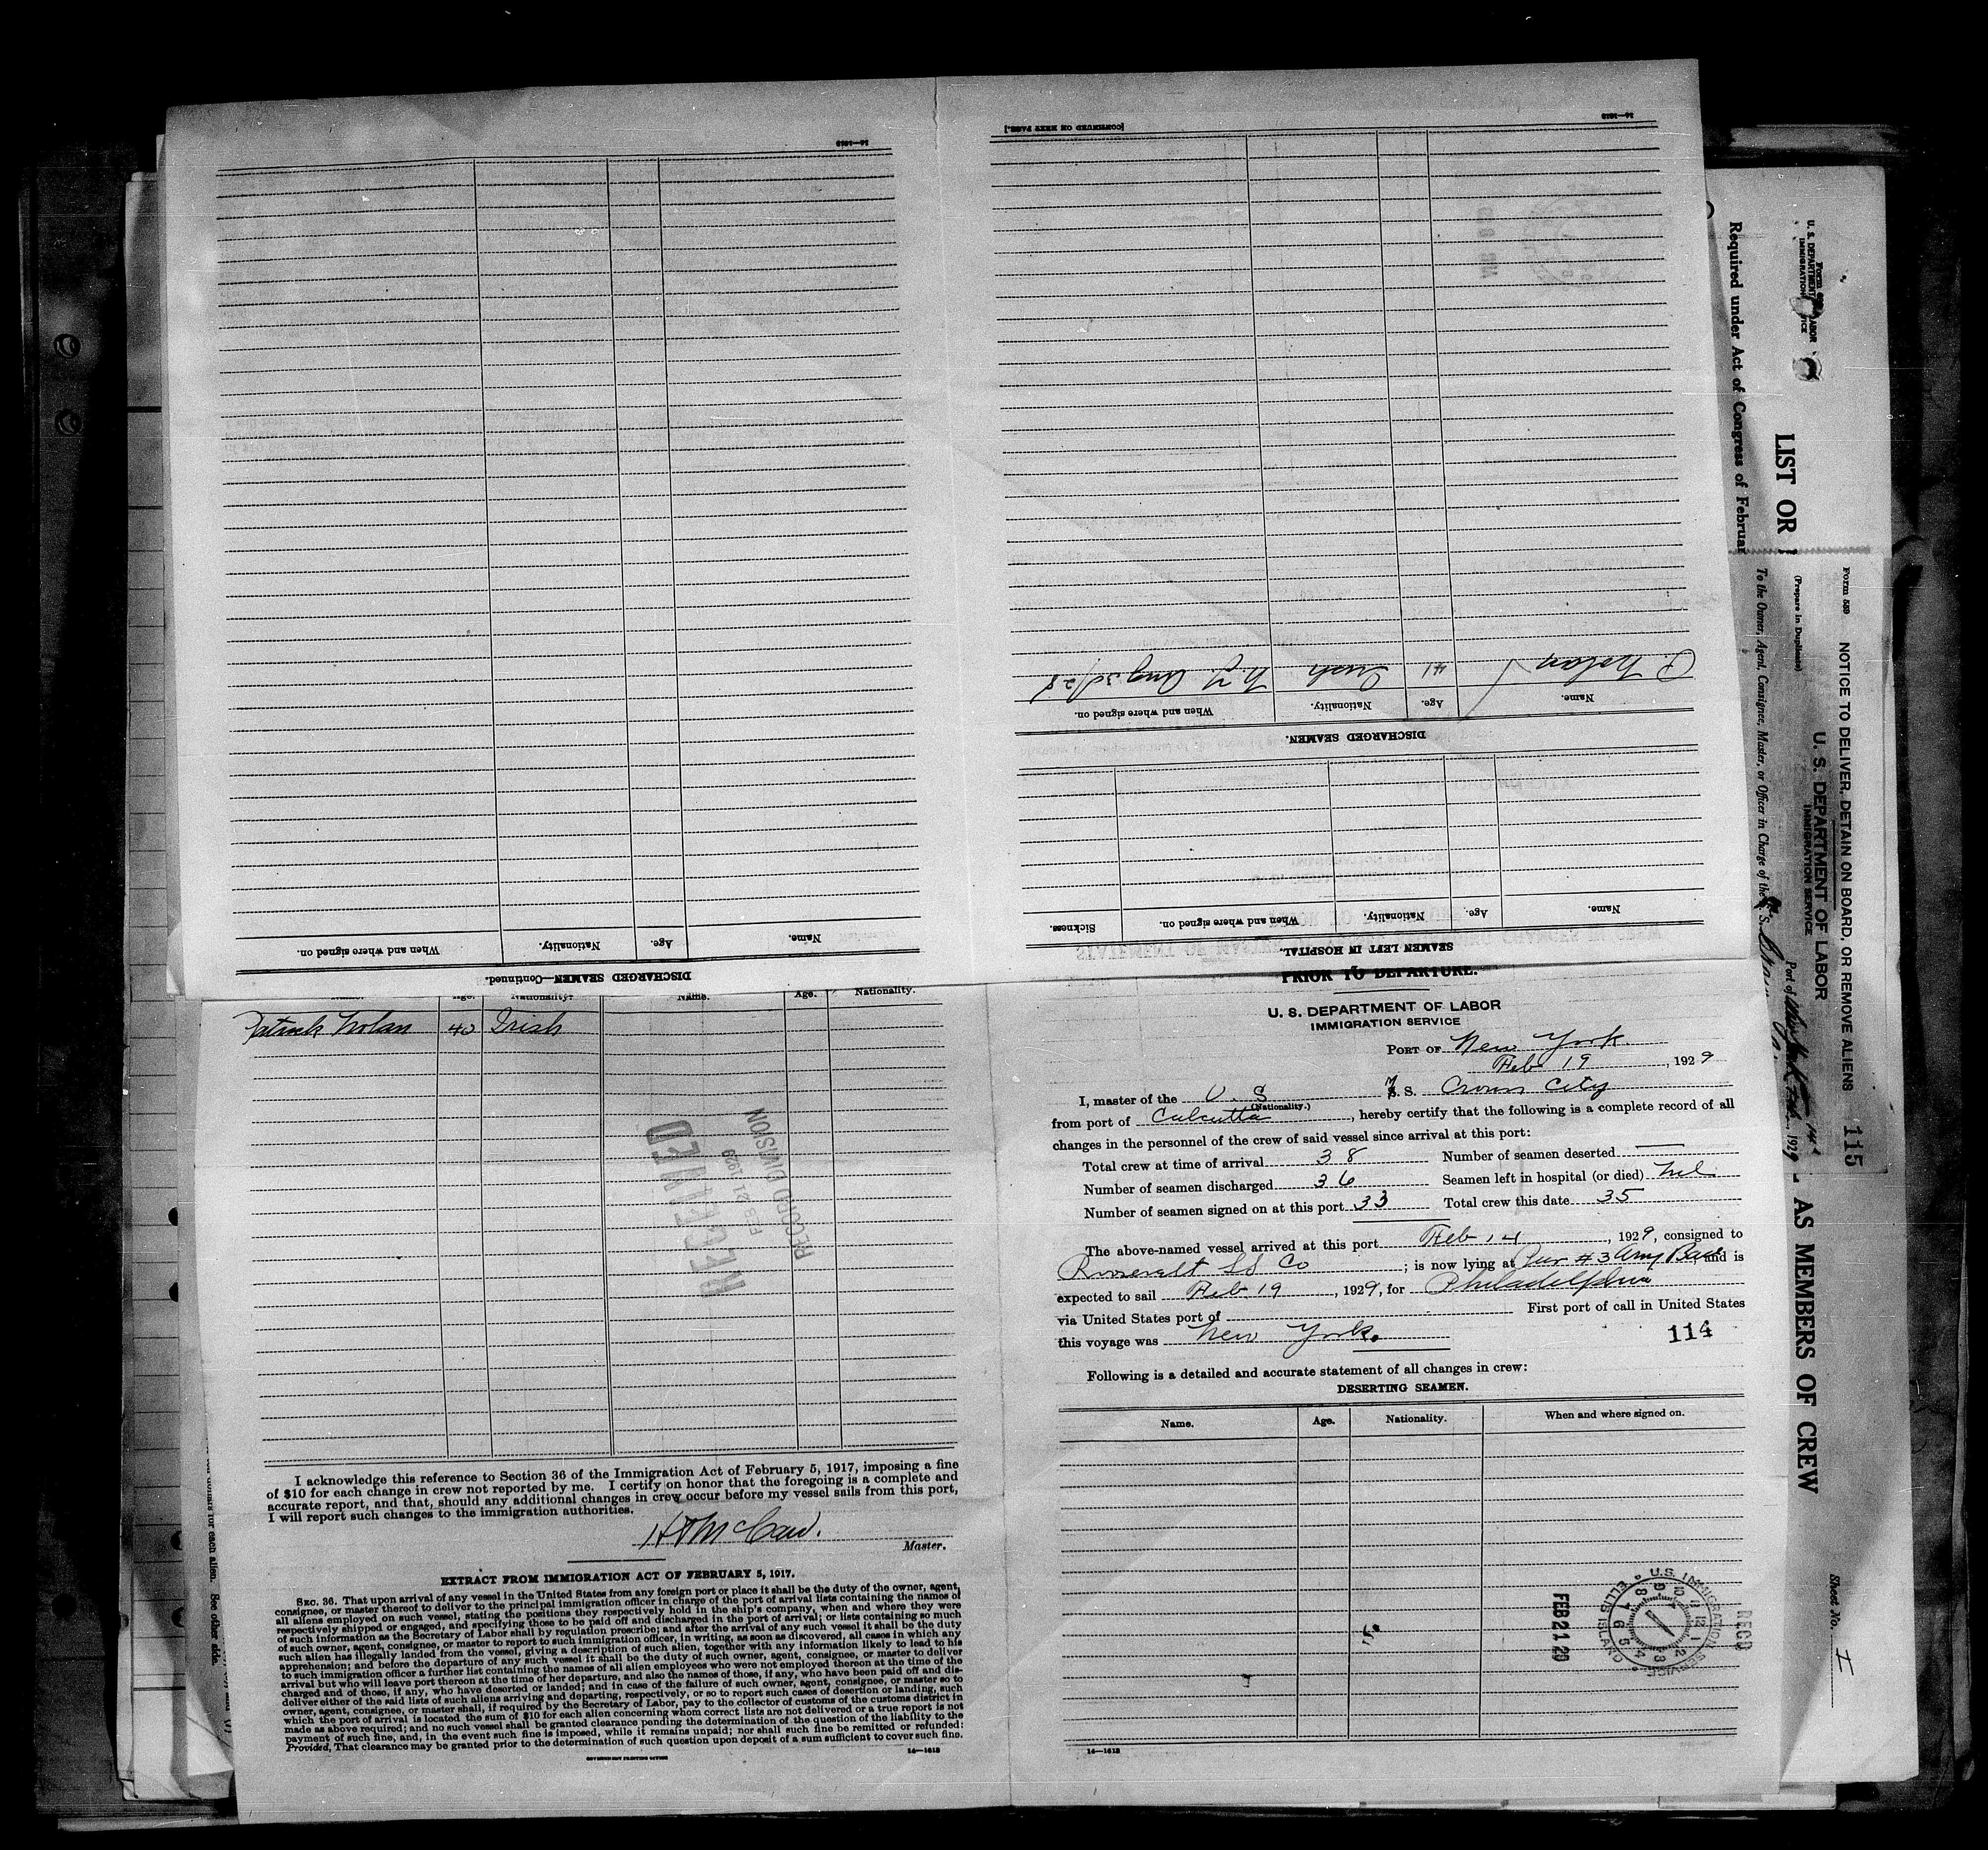 [CONTINUED ON NEXT PAGE.]
14—1613
14—1613
DISCHARGED SEAMEN.
Name. Age. Nationality. When and where signed on.
P. Nolan 41 Irish N.Y. Aug 30/28
SEAMEN LEFT IN HOSPITAL.
Name. Age. Nationality. When and where signed on. Sickness.
DISCHARGED SEAMEN—Continued.
Name. Age. Nationality. When and where signed on.
Name. Age. Nationality. Name. Age. Nationality.
Patrick Nolan 40 Irish
RECEIVED
FEB 21 1929
RECORD DIVISION
I acknowledge this reference to Section 36 of the Immigration Act of February 5, 1917, imposing a fine
of $10 for each change in crew not reported by me. I certify on honor that the foregoing is a complete and
accurate report, and that, should any additional changes in crew occur before my vessel sails from this port,
I will report such changes to the immigration authorities.
Master.
EXTRACT FROM IMMIGRATION ACT OF FEBRUARY 5, 1917.
SEC. 36. That upon arrival of any vessel in the United States from any foreign port or place it shall be the duty of the owner, agent,
consignee, or master thereof to deliver to the principal immigration officer in charge of the port of arrival lists containing the names of
all aliens employed on such vessel, stating the positions they respectively hold in the ship's company, when and where they were
respectively shipped or engaged, and specifying those to be paid off and discharged in the port of arrival; or lists containing so much
of such information as the Secretary of Labor shall by regulation prescribe; and after the arrival of any such vessel it shall be the duty
of such owner, agent, consignee, or master to report to such immigration officer, in writing, as soon as discovered, all cases in which any
such alien has illegally landed from the vessel, giving a description of such alien, together with any information likely to lead to his
apprehension; and before the departure of any such vessel it shall be the duty of such owner, agent, consignee, or master to deliver
to such immigration officer a further list containing the names of all alien employees who were not employed thereon at the time of the
arrival but who will leave port thereon at the time of her departure, and also the names of those, if any, who have been paid off and dis-
charged and of those, if any, who have deserted or landed; and in case of the failure of such owner, agent, consignee, or master so to
deliver either of the said lists of such aliens arriving and departing, respectively, or so to report such cases of desertion or landing, such
owner, agent, consignee, or master shall, if required by the Secretary of Labor, pay to the collector of customs of the customs district in
which the port of arrival is located the sum of $10 for each alien concerning whom correct lists are not delivered or a true report is not
made as above required; and no such vessel shall be granted clearance pending the determination of the question of the liability to the
payment of such fine, and, in the event such fine is imposed, while it remains unpaid; nor shall such fine be remitted or refunded:
Provided, That clearance may be granted prior to the determination of such question upon deposit of a sum sufficient to cover such fine.
GOVERNMENT PRINTING OFFICE 14—1613
PRIOR TO DEPARTURE.
U. S. DEPARTMENT OF LABOR
IMMIGRATION SERVICE
PORT OF New York.
Feb 19, 1929
I, master of the U. S. M. S. Crown City
(Nationality.)
from port of Calcutta, hereby certify that the following is a complete record of all
changes in the personnel of the crew of said vessel since arrival at this port:
Total crew at time of arrival 38 Number of seamen deserted —
Number of seamen discharged 36 Seamen left in hospital (or died) Nil
Number of seamen signed on at this port 33 Total crew this date 35
The above-named vessel arrived at this port Feb 14, 1929, consigned to
Roosevelt SS Co; is now lying at Pier #3 Army Base, and is
expected to sail Feb 19, 1929, for Philadelphia
via United States port of First port of call in United States
this voyage was New York.
114
Following is a detailed and accurate statement of all changes in crew:
DESERTING SEAMEN.
Name. Age. Nationality. When and where signed on.
REC'D
U.S. IMMIGRATION SERVICE
ELLIS ISLAND
FEB 21 29
14—1613
Required under Act of Congress of Februar
U. S. DEPARTMENT LABOR
IMMIGRATION
LIST OR
AS MEMBERS OF CREW
Sheet No. I
Form 559 NOTICE TO DELIVER, DETAIN ON BOARD, OR REMOVE ALIENS 115
U. S. DEPARTMENT OF LABOR
IMMIGRATION SERVICE
(Prepare in Duplicate)
Port of New York, Feb. 14, 1929
To the Owner, Agent, Consignee, Master, or Officer in Charge of the S. S.
for each alien. See other side.